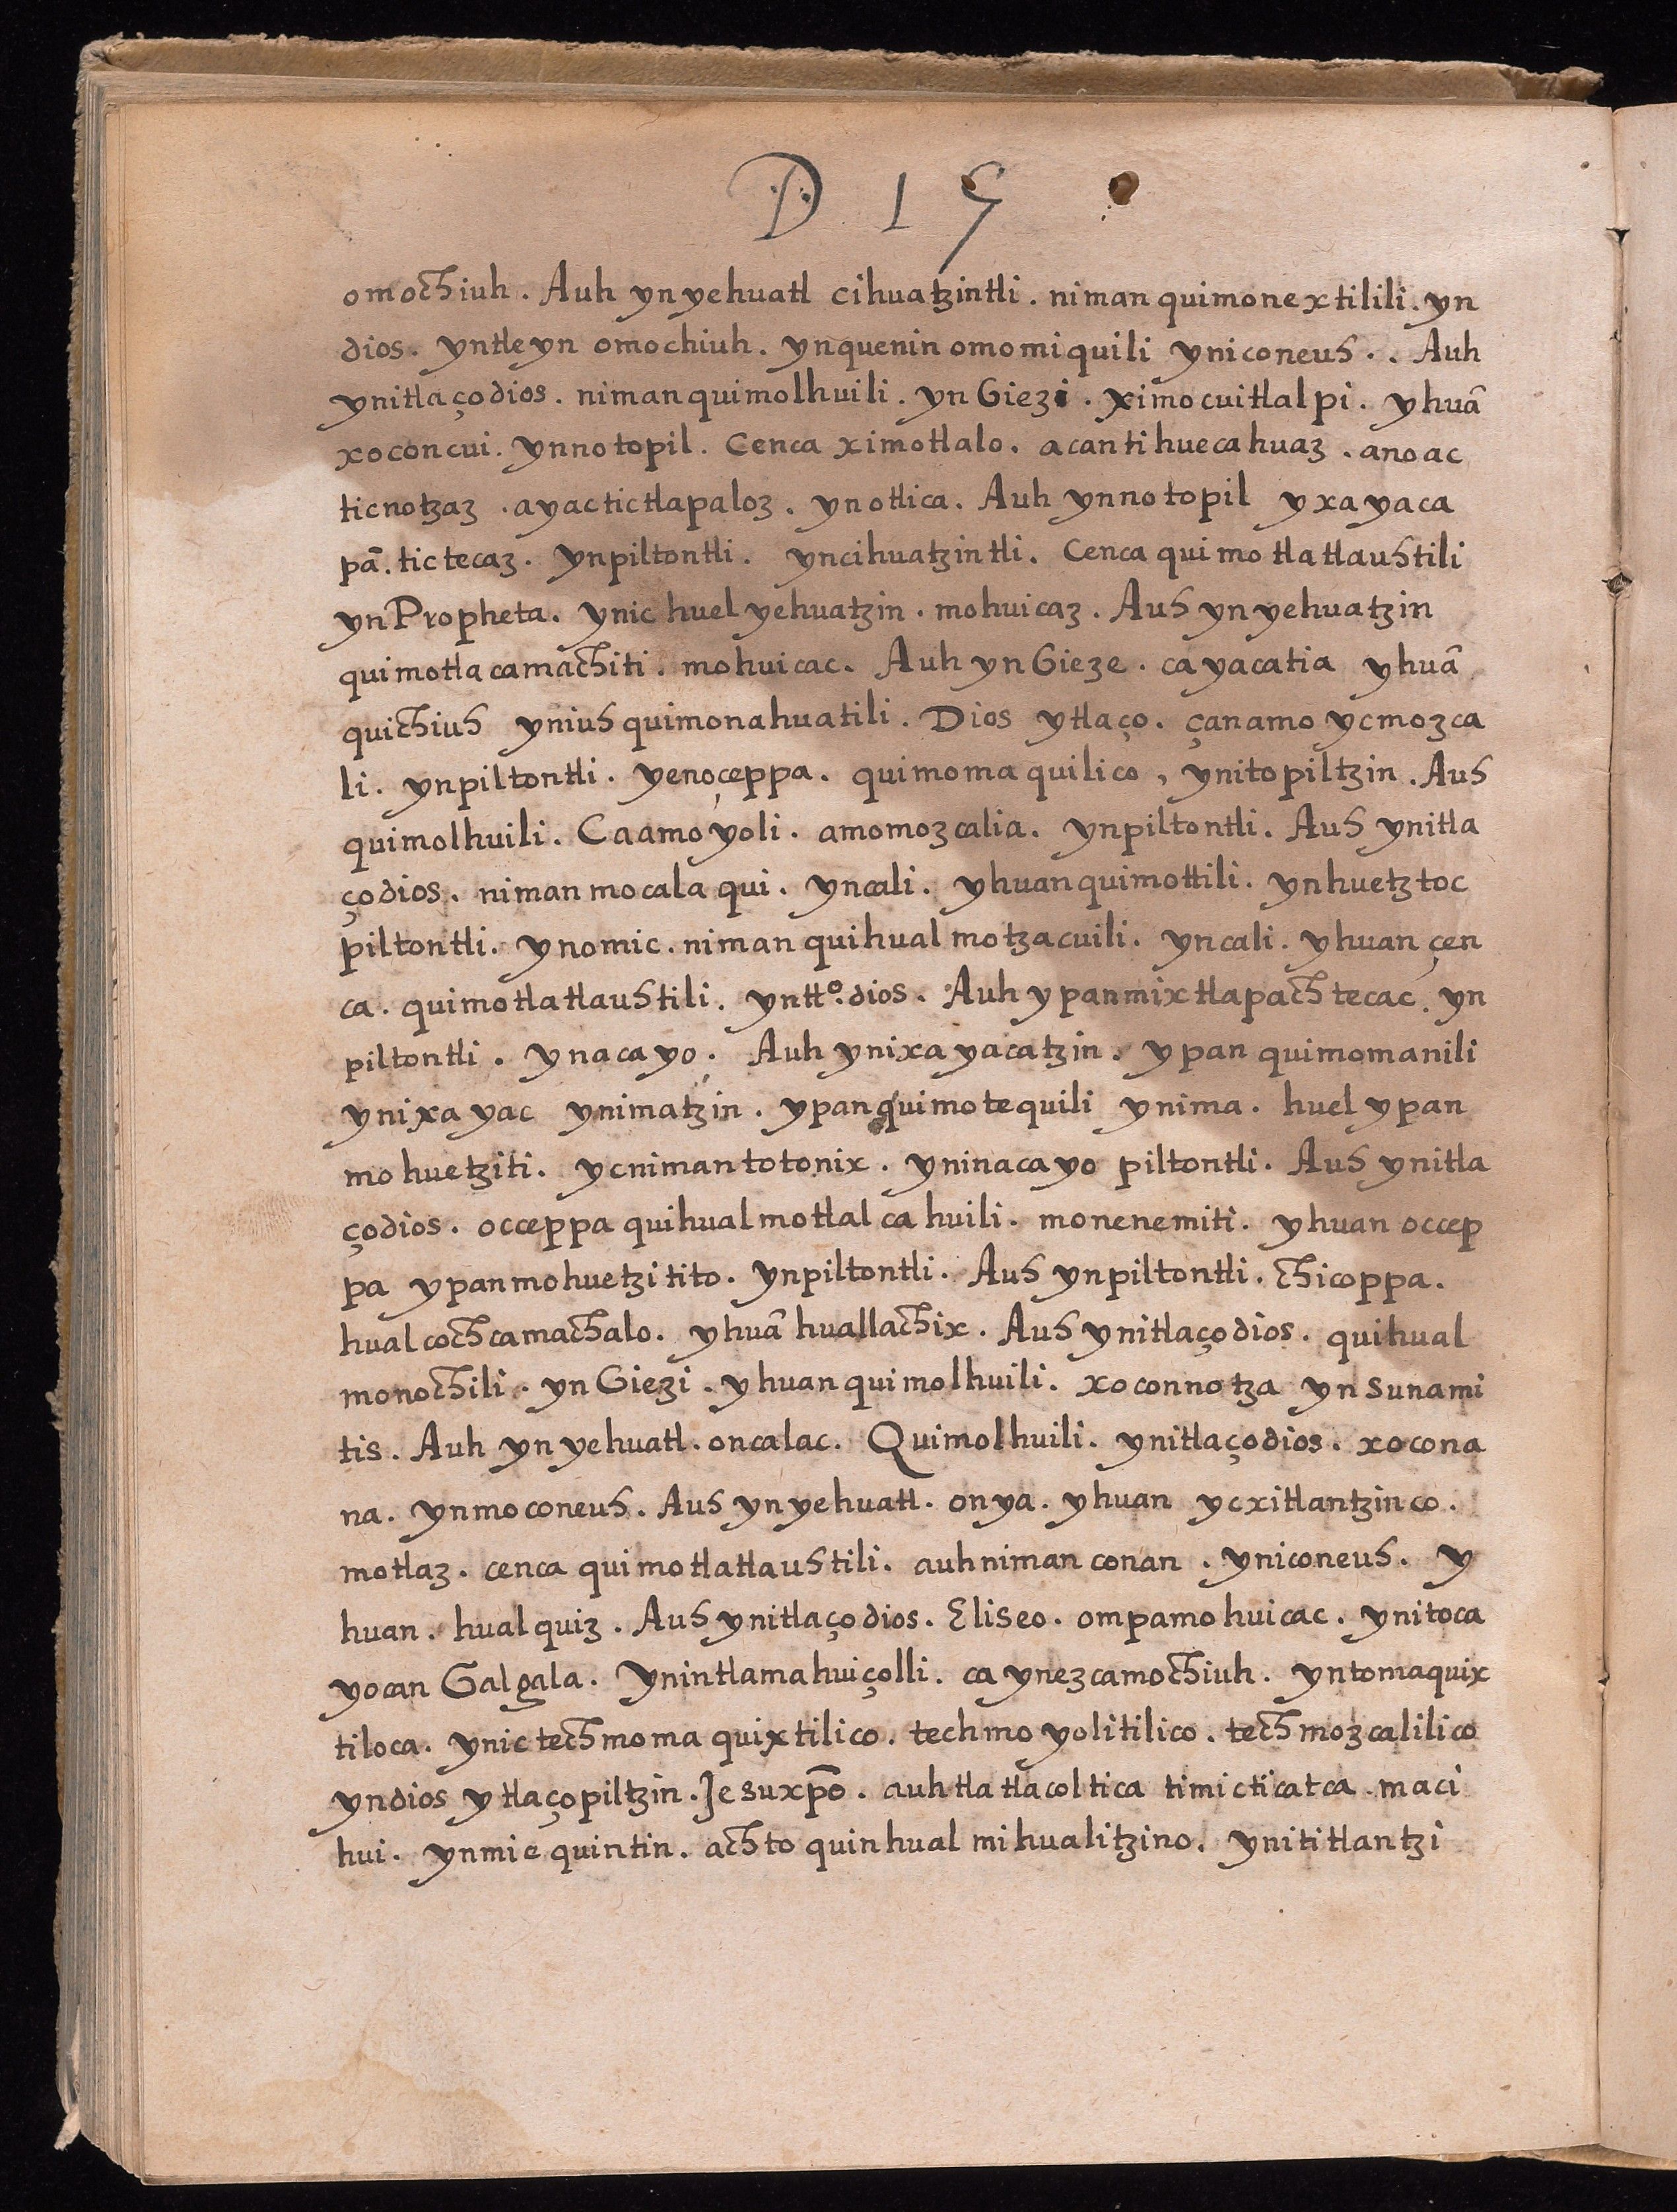 D 15
omochiuh. Auh yn yehuatl cihuatzintli. niman quimonextilili. yn
dios. yntleyn omochiuh. ynquenin omomiquili yniconeuh.. Auh
ynitlaçodios. niman quimolhuili. yn Giezi. ximocuitlalpi. yhuā
xoconcui. ynnotopil. Cenca ximotlalo. acantihuecahuaz. anoac
ticnotzaz. ayactictlapaloz. ynotlica. Auh ynnotopil yxayaca
pā. tictecaz. ynpiltontli. yncihuatzintli. Cenca quimotlatlauhtili
ynPropheta. ynic huel yehuatzin. mohuicaz. Auh ynyehuatzin
quimotlacamachiti. mohuicac. Auh ynGieze. cayacatia yhuā
quichiuh yniuhquimonahuatili. Dios ytlaço. çanamo ycmozca
li. ynpiltontli. yenoçeppa. quimomaquilico, ynitopiltzin. Auh
quimolhuili. Caamoyoli. amomozcalia. ynpiltontli. Auh ynitla
çodios. niman mocalaqui. yncali. yhuanquimottili. ynhuetztoc
piltontli. ynomic. niman quihualmotzacuili. yncali. yhuan çen
ca. quimotlatlauhtili. yntto. dios. Auh ypanmixtlapachtecac. yn
piltontli. ynacayo. Auh ynixayacatzin. ypan quimomanili
ynixayac ynimatzin. ypanquimotequili ynima. huel ypan
mohuetziti. ycnimantotonix. yninacayo piltontli. Auh ynitla
çodios. occeppa quihualmotlalcahuili. monenemiti. yhuan occep
pa ypanmohuetzitito. ynpiltontli. Auh ynpiltontli. chicoppa.
hualcochcamachalo. yhuā huallachix. Auh ynitlaçodios. quihual
monochili. yn Giezi. yhuan quimolhuili. xoconnotza yn sunami
tis. Auh yn yehuatl. oncalac. Quimolhuili. ynitlaçodios. xocona
na. ynmoconeuh. Auh ynyehuatl. onya. yhuan ycxitlantzinco.
motlaz. cenca quimotlatlauhtili. auhniman conan. yniconeuh. y
huan. hualquiz. Auh ynitlaçodios. Eliseo. ompamohuicac. ynitoca
yocan Galgala. ynintlamahuiçolli. ca ynezcamochiuh. yntomaquix
tiloca. ynic techmomaquixtilico. techmoyolitilico. techmozcalilico
yndios ytlaçopiltzin. Jesuxp̄o. auhtlatlacoltica timicticatca. maci
hui. ynmiequintin. achto quinhualmihualitzino. ynititlantzi